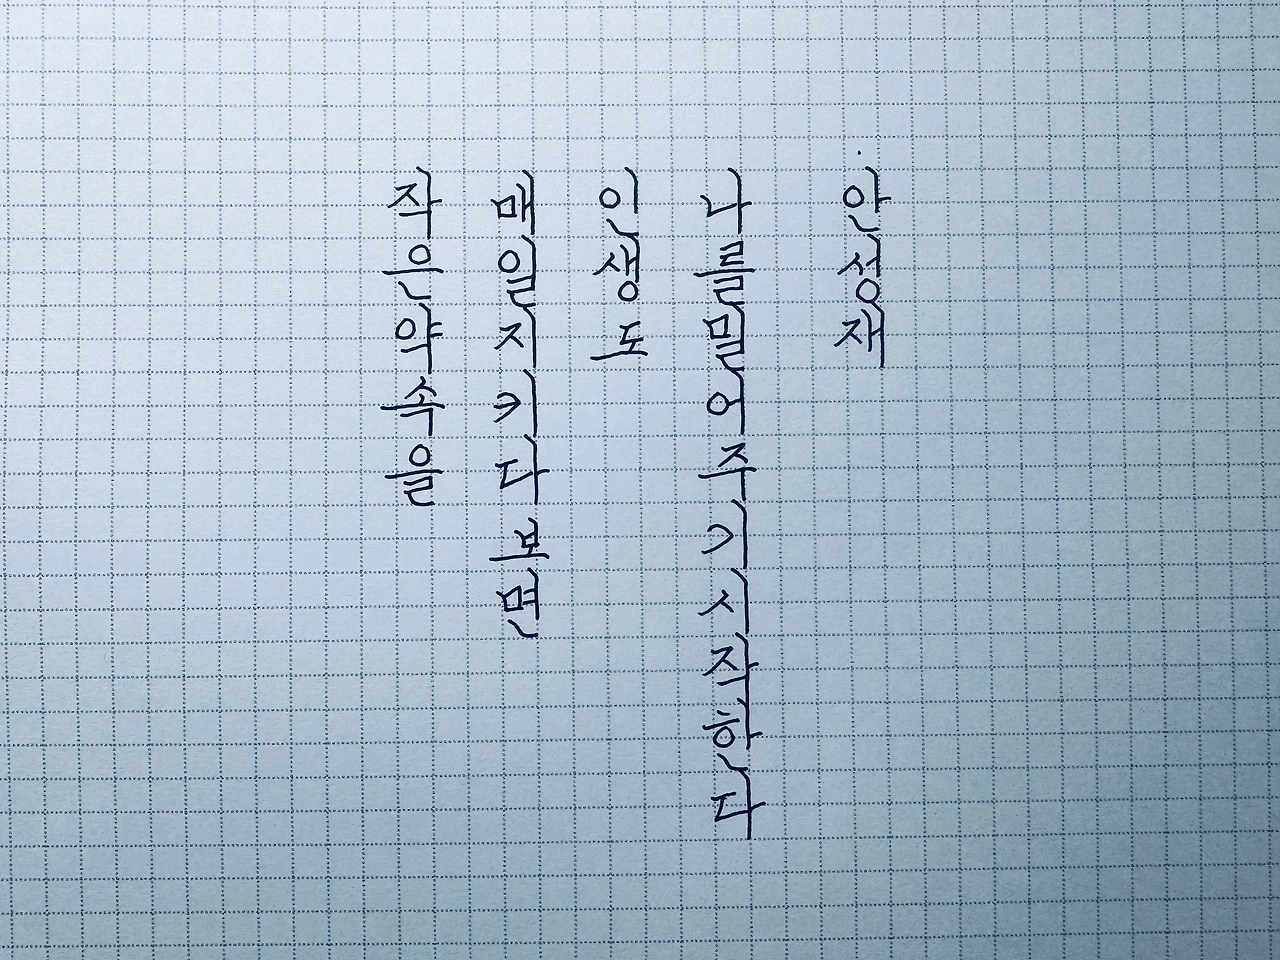 작은약속을
매일지키다 보면
인생도
나를믿어주기시작한다
안성재